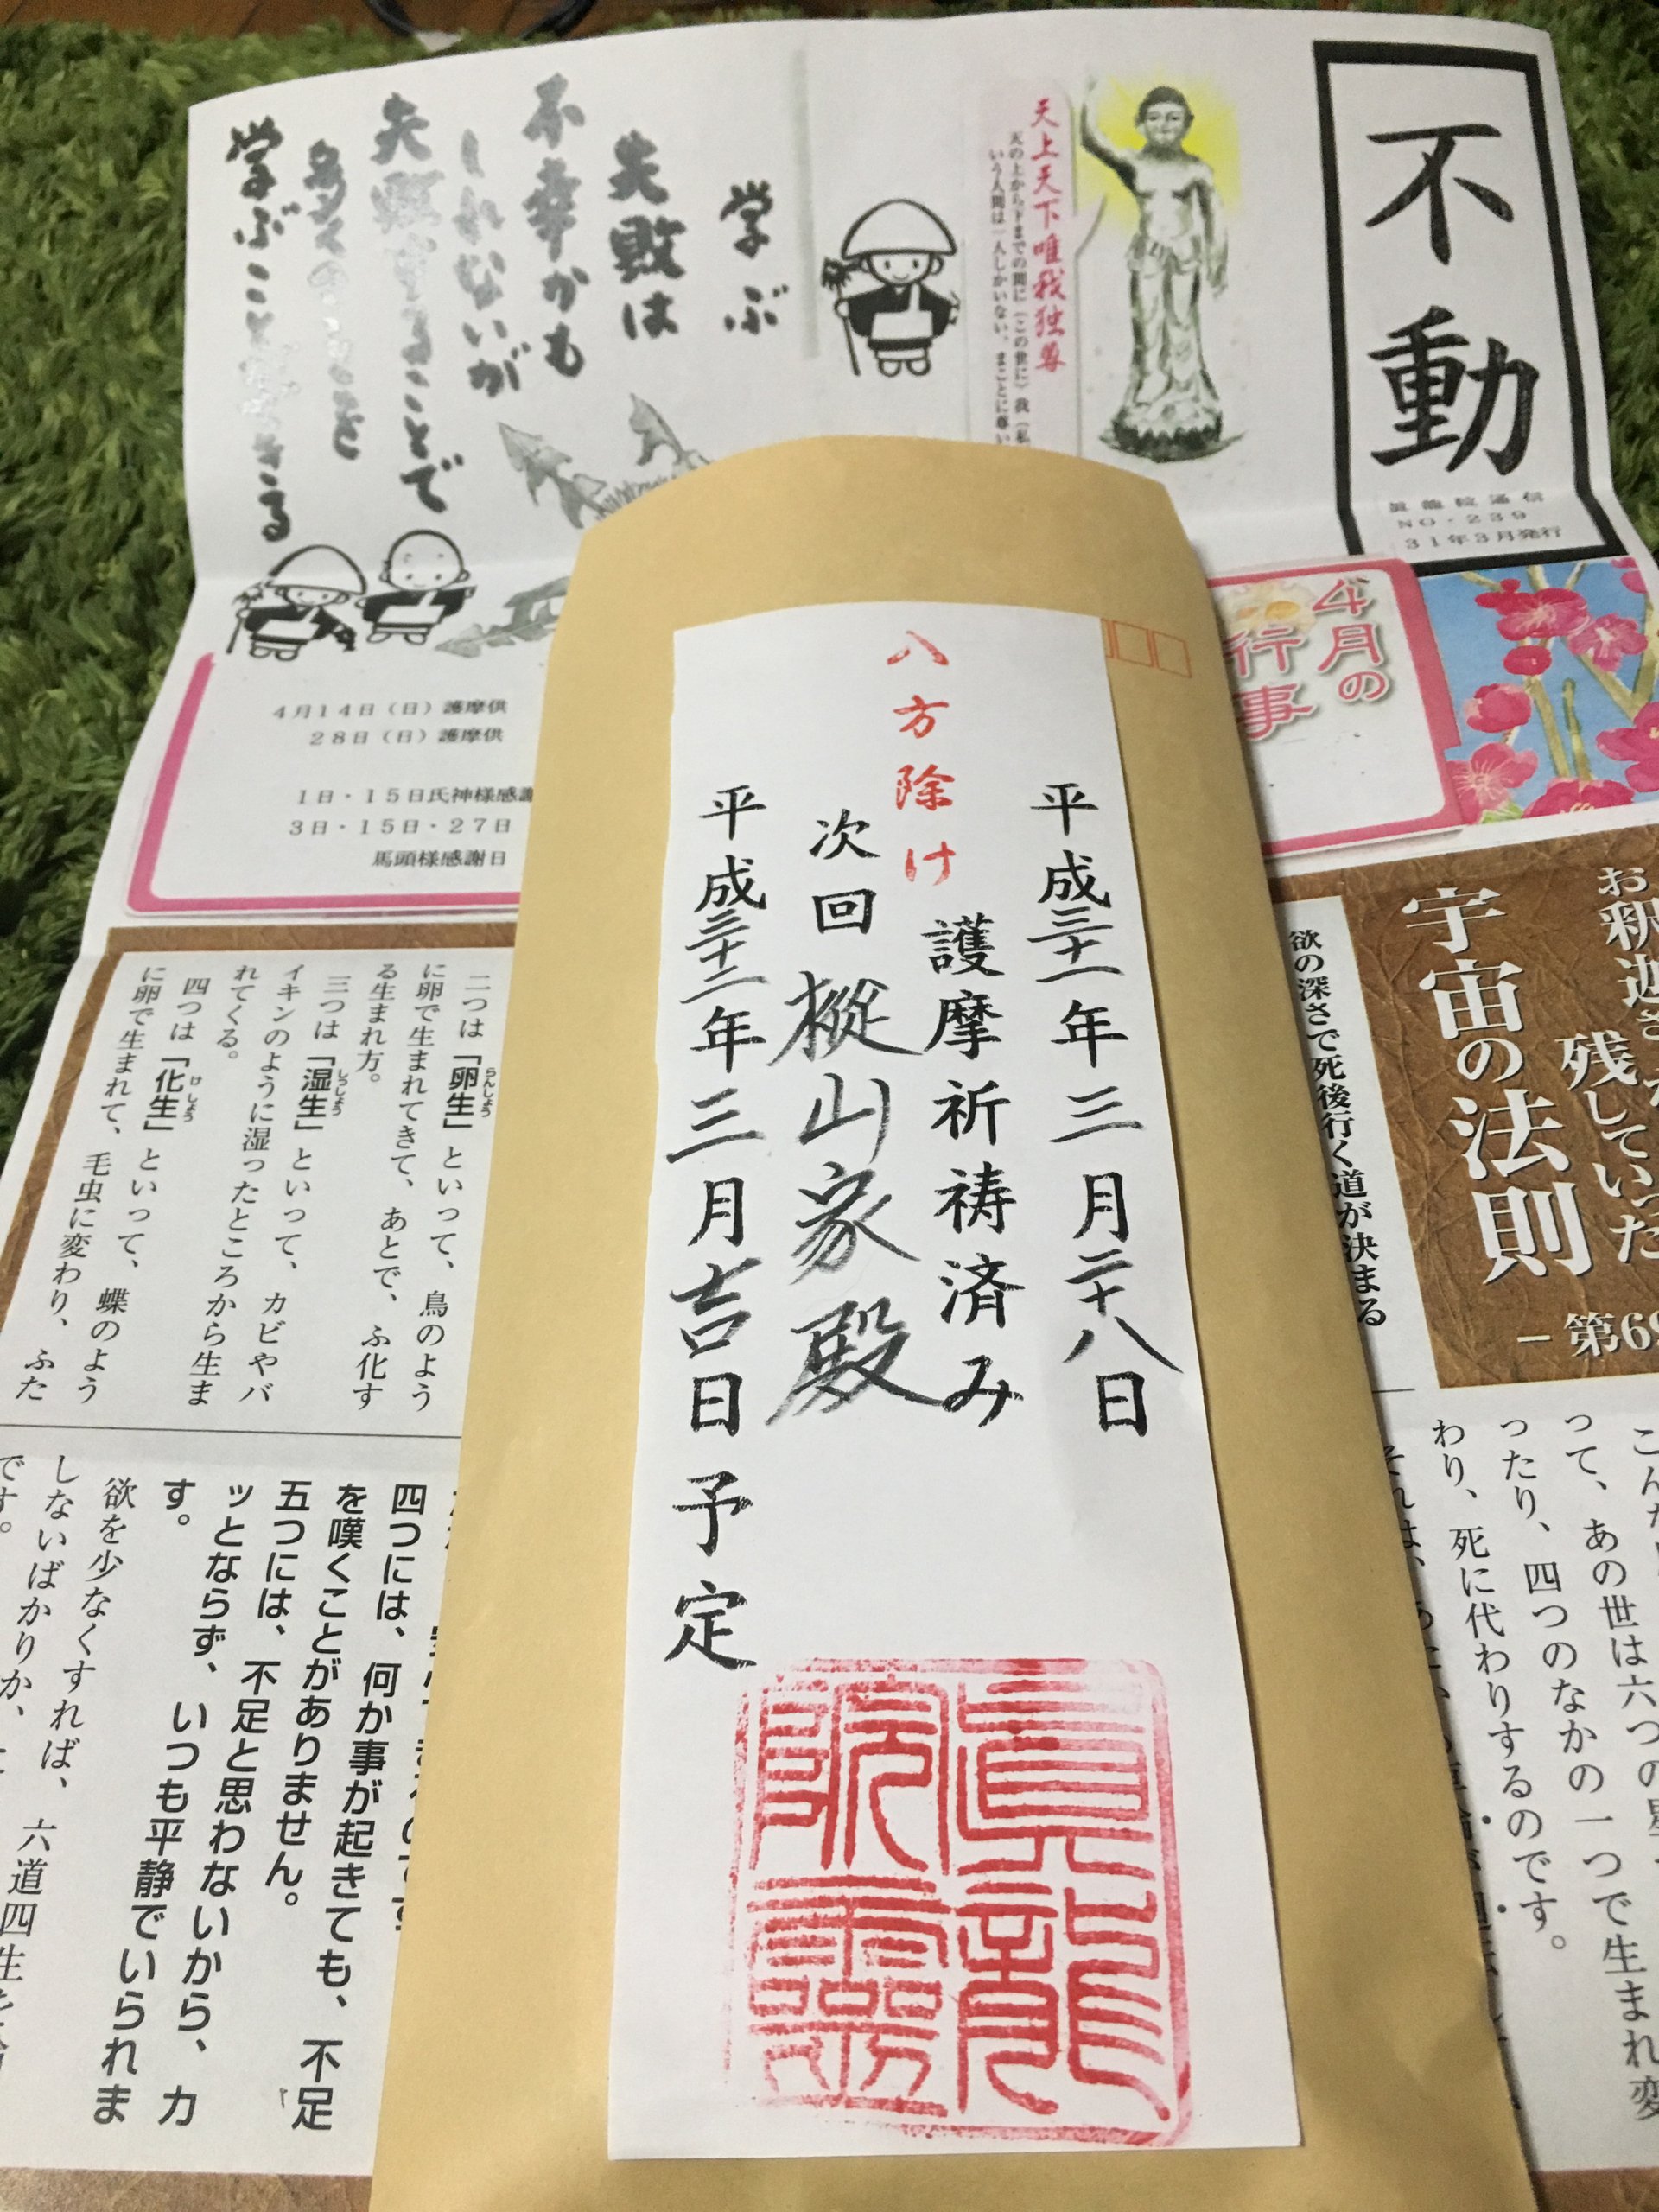 不動
眞龍院通信
NO・239
31年3月発行
天上天下唯我独尊
天の上から下までの間に（この世に）我（私
いう人間は一人しかいない、まことに尊い
学ぶ
失敗は
不幸かも
しれないが
失敗することで
多くのことを
学ぶこと
4月の
行事
4月14日（日）護摩供
28日（日）護摩供
1日・15日氏神様感謝
3日・15日・27日
馬頭様感謝日
八方除け
平成三十一年三月二十八日
護摩祈祷済み
次回 樅山家殿
平成三十二年三月吉日予定
眞龍
院
お釈迦さ
残していった
宇宙の法則
－第69
欲の深さで死後行く道が決まる
二つは「卵生」といって、鳥のよう
に卵で生まれてきて、あとで、ふ化す
る生まれ方。
三つは「湿生」といって、カビやバ
イキンのように湿ったところから生ま
れてくる。
四つは「化生」といって、蝶のよう
に卵で生まれて、毛虫に変わり、ふた
って、あの世は六つの
ったり、四つのなかの一つで生まれ変
わり、死に代わりするのです。
四つには、何か事が起きても、不足
を嘆くことがありません。
五つには、不足と思わないから、カ
ッとならず、いつも平静でいられま
す。
欲を少なくすれば、六道四生を
しないばかりか、
です。